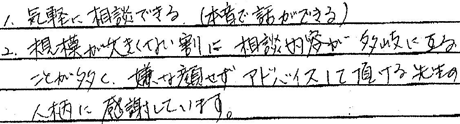 1、気軽に相談できる。(本音で話ができる)
2、規模が大きくない割に相談内容が多岐にする
ことが多く、嫌な顔せずアドバイスして頂ける先生の
人柄に感謝しています。